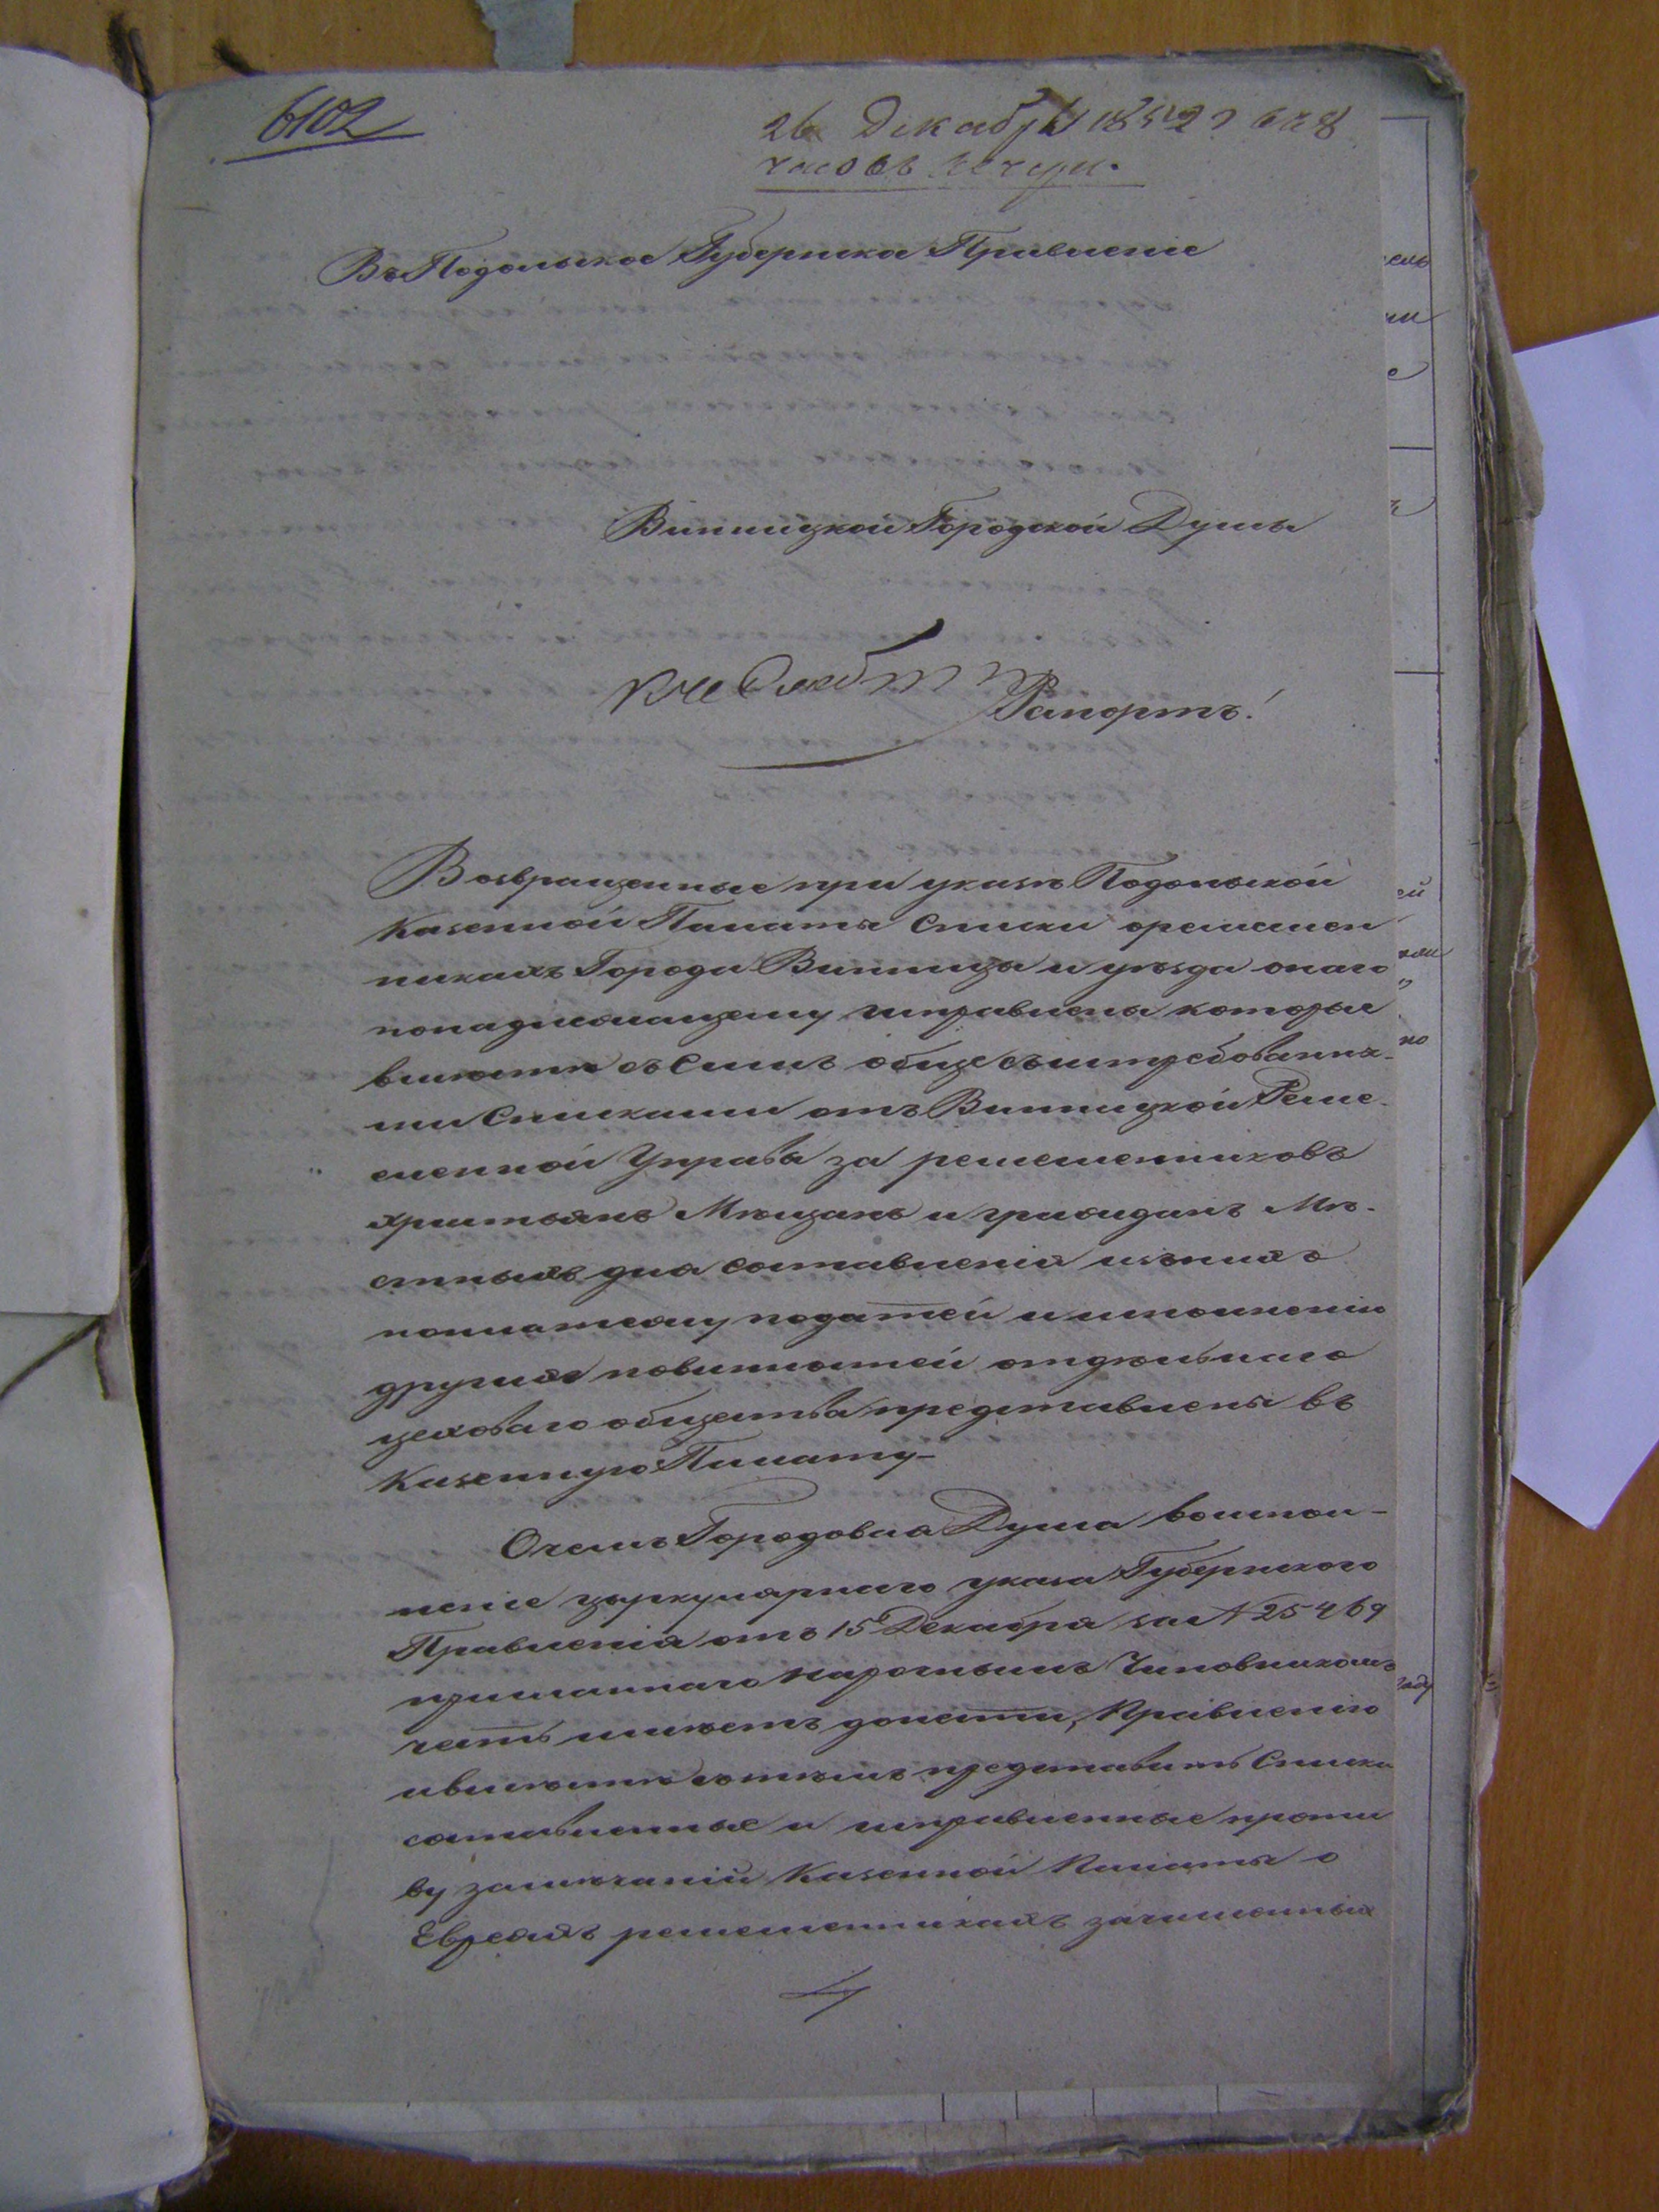 6102
26 Декабря 1852 г в 8
часовъ вечера.
Въ Подольское Губернское Правленіе
Винницкой Городской Думы
Рапортъ!
Возвращенные при указѣ Подольской
Казенной Палаты Списки оремеслен
никахъ Города Винницы и уѣзда онаго
понадлежащему исправлены которые
вмѣстѣ съ Симъ обще съ истребованны-
ми Списками отъ Винницкой Реме-
сленной Управы за ремесленниковъ
христьянъ Мѣщанъ и гражданъ Мѣ-
стныхъ для составленія изъ нихъ
поплатежу податей и исполненію
другихъ повинностей отдѣльнаго
цеховаго общества представлены въ
Казенную Палату-
Очемъ Городовая Дума воиспол-
неніе цыркулярнаго указа Губернского
Правленія отъ 15 Декабря за № 25469
присланнаго нарочнымъ Чиновникомъ
честь имѣетъ донести, Правленію
ивмѣстѣ сътѣмъ представить Списки
составленные и исправленные проти
ву замѣчаній Казенной Палаты о
Евреяхъ ремесленникахъ зачисленныхъ